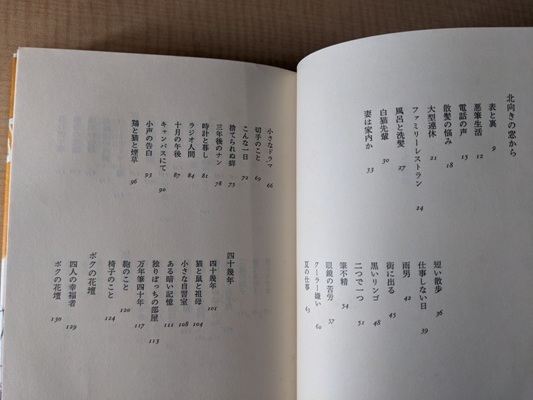 北向きの窓から
表と裏 9
悪筆生活 12
電話の声 15
散髪の悩み 18
大型連休 21
ファミリーレストラン 24
風呂と洗髪 27
白猫先輩 30
妻は家内か 33
短い散歩 36
仕事しない日 39
雨男 42
街に出る 45
黒いリンゴ 48
二つで一つ 51
筆不精 54
眼鏡の苦労 57
クーラー嫌い 60
夏の仕事 63
小さなドラマ 66
切手のこと 69
こんな一日 72
捨てられぬ錦 73
三年後のナン 78
時計と暮し 81
ラジオ人間 84
十月の午後 87
キャンバスにて 90
小戸の告白 93
鶏と猫と煙草 96
四十幾年
四十幾年 101
猫と鼠と祖母 104
小さな自習室 108
ある暗い記憶 111
独りぼっちの部屋 113
万年筆四十年 117
鞄のこと 120
椅子のこと 124
ボクの花壇
四人の幸福者 129
ボクの花壇 130